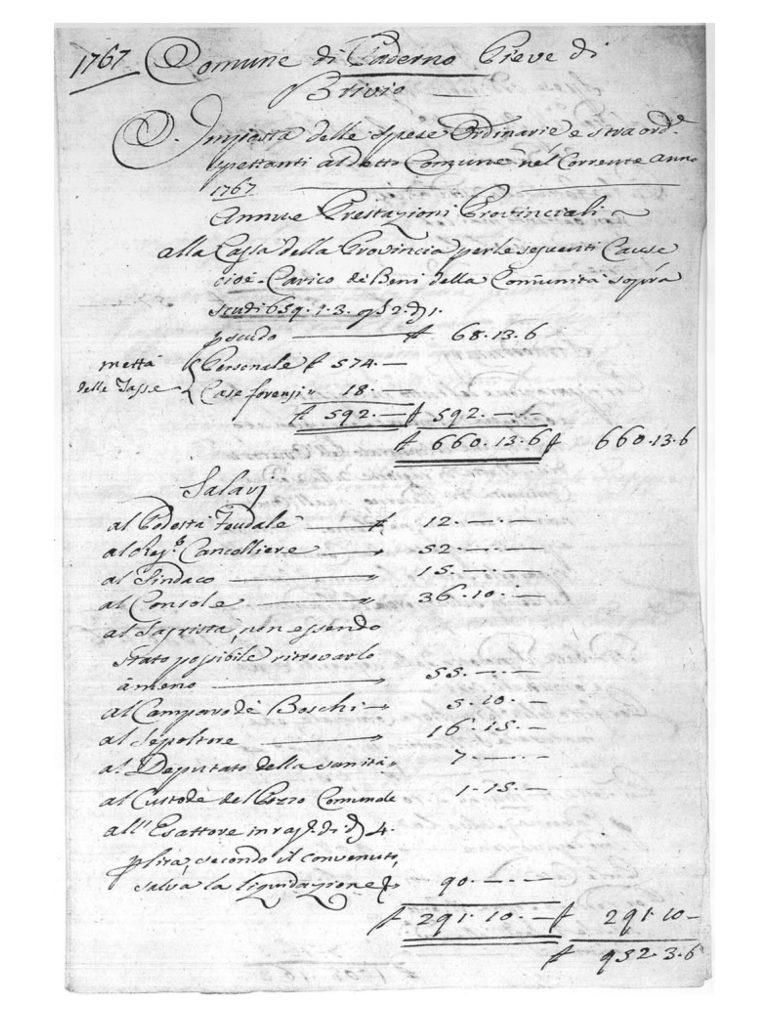 1767 Comune di Paderno Pieve di
Brivio
Imposta delle spese Ordinarie e straord.e
spettanti al detto Comune nel Corrente anno
1767
Annue Prestazioni Provinciali
alla Cassa della Provincia per le seguenti Cause
cioè. Carico de Beni della Comunità sopra
scudi 659. 1. 3.
p scudo £ 68. 13. 6
mettà
delle Tasse
Personale £ 574. —
Case forensi " 18. —
£ 592. — £ 592. — . —
£ 660. 13. 6 £ 660. 13. 6
Salarj
al Podestà Feudale — £ 12. — . —
al Reg.o Cancelliere — " 52. — . —
al Sindaco — " 15. — . —
al Console — " 36. 10. —
al Sagrista, non essendo
stato possibile ritrovarlo
à meno — " 55. — . —
al Camparo dè Boschi — " 5. 10. —
al Sepoltore — " 16. 15. —
al Deputato della sanità " 7. — . —
al Custode del Pozzo Comunale 1. 15. —
all'Esattore in rag.e di d 4.
p lira, secondo il convenuto,
salva la liquidazione 90. — . —
£ 291. 10. — £ 291. 10 —
£ 952. 3. 6